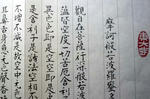 摩訶般若波羅蜜多
觀自在菩薩行深般若
蘊皆空度一切苦厄舍利
異色色即是空空即是色
是舍利子是諸法空相不
不增不減是故空中無色
耳鼻舌身意無色